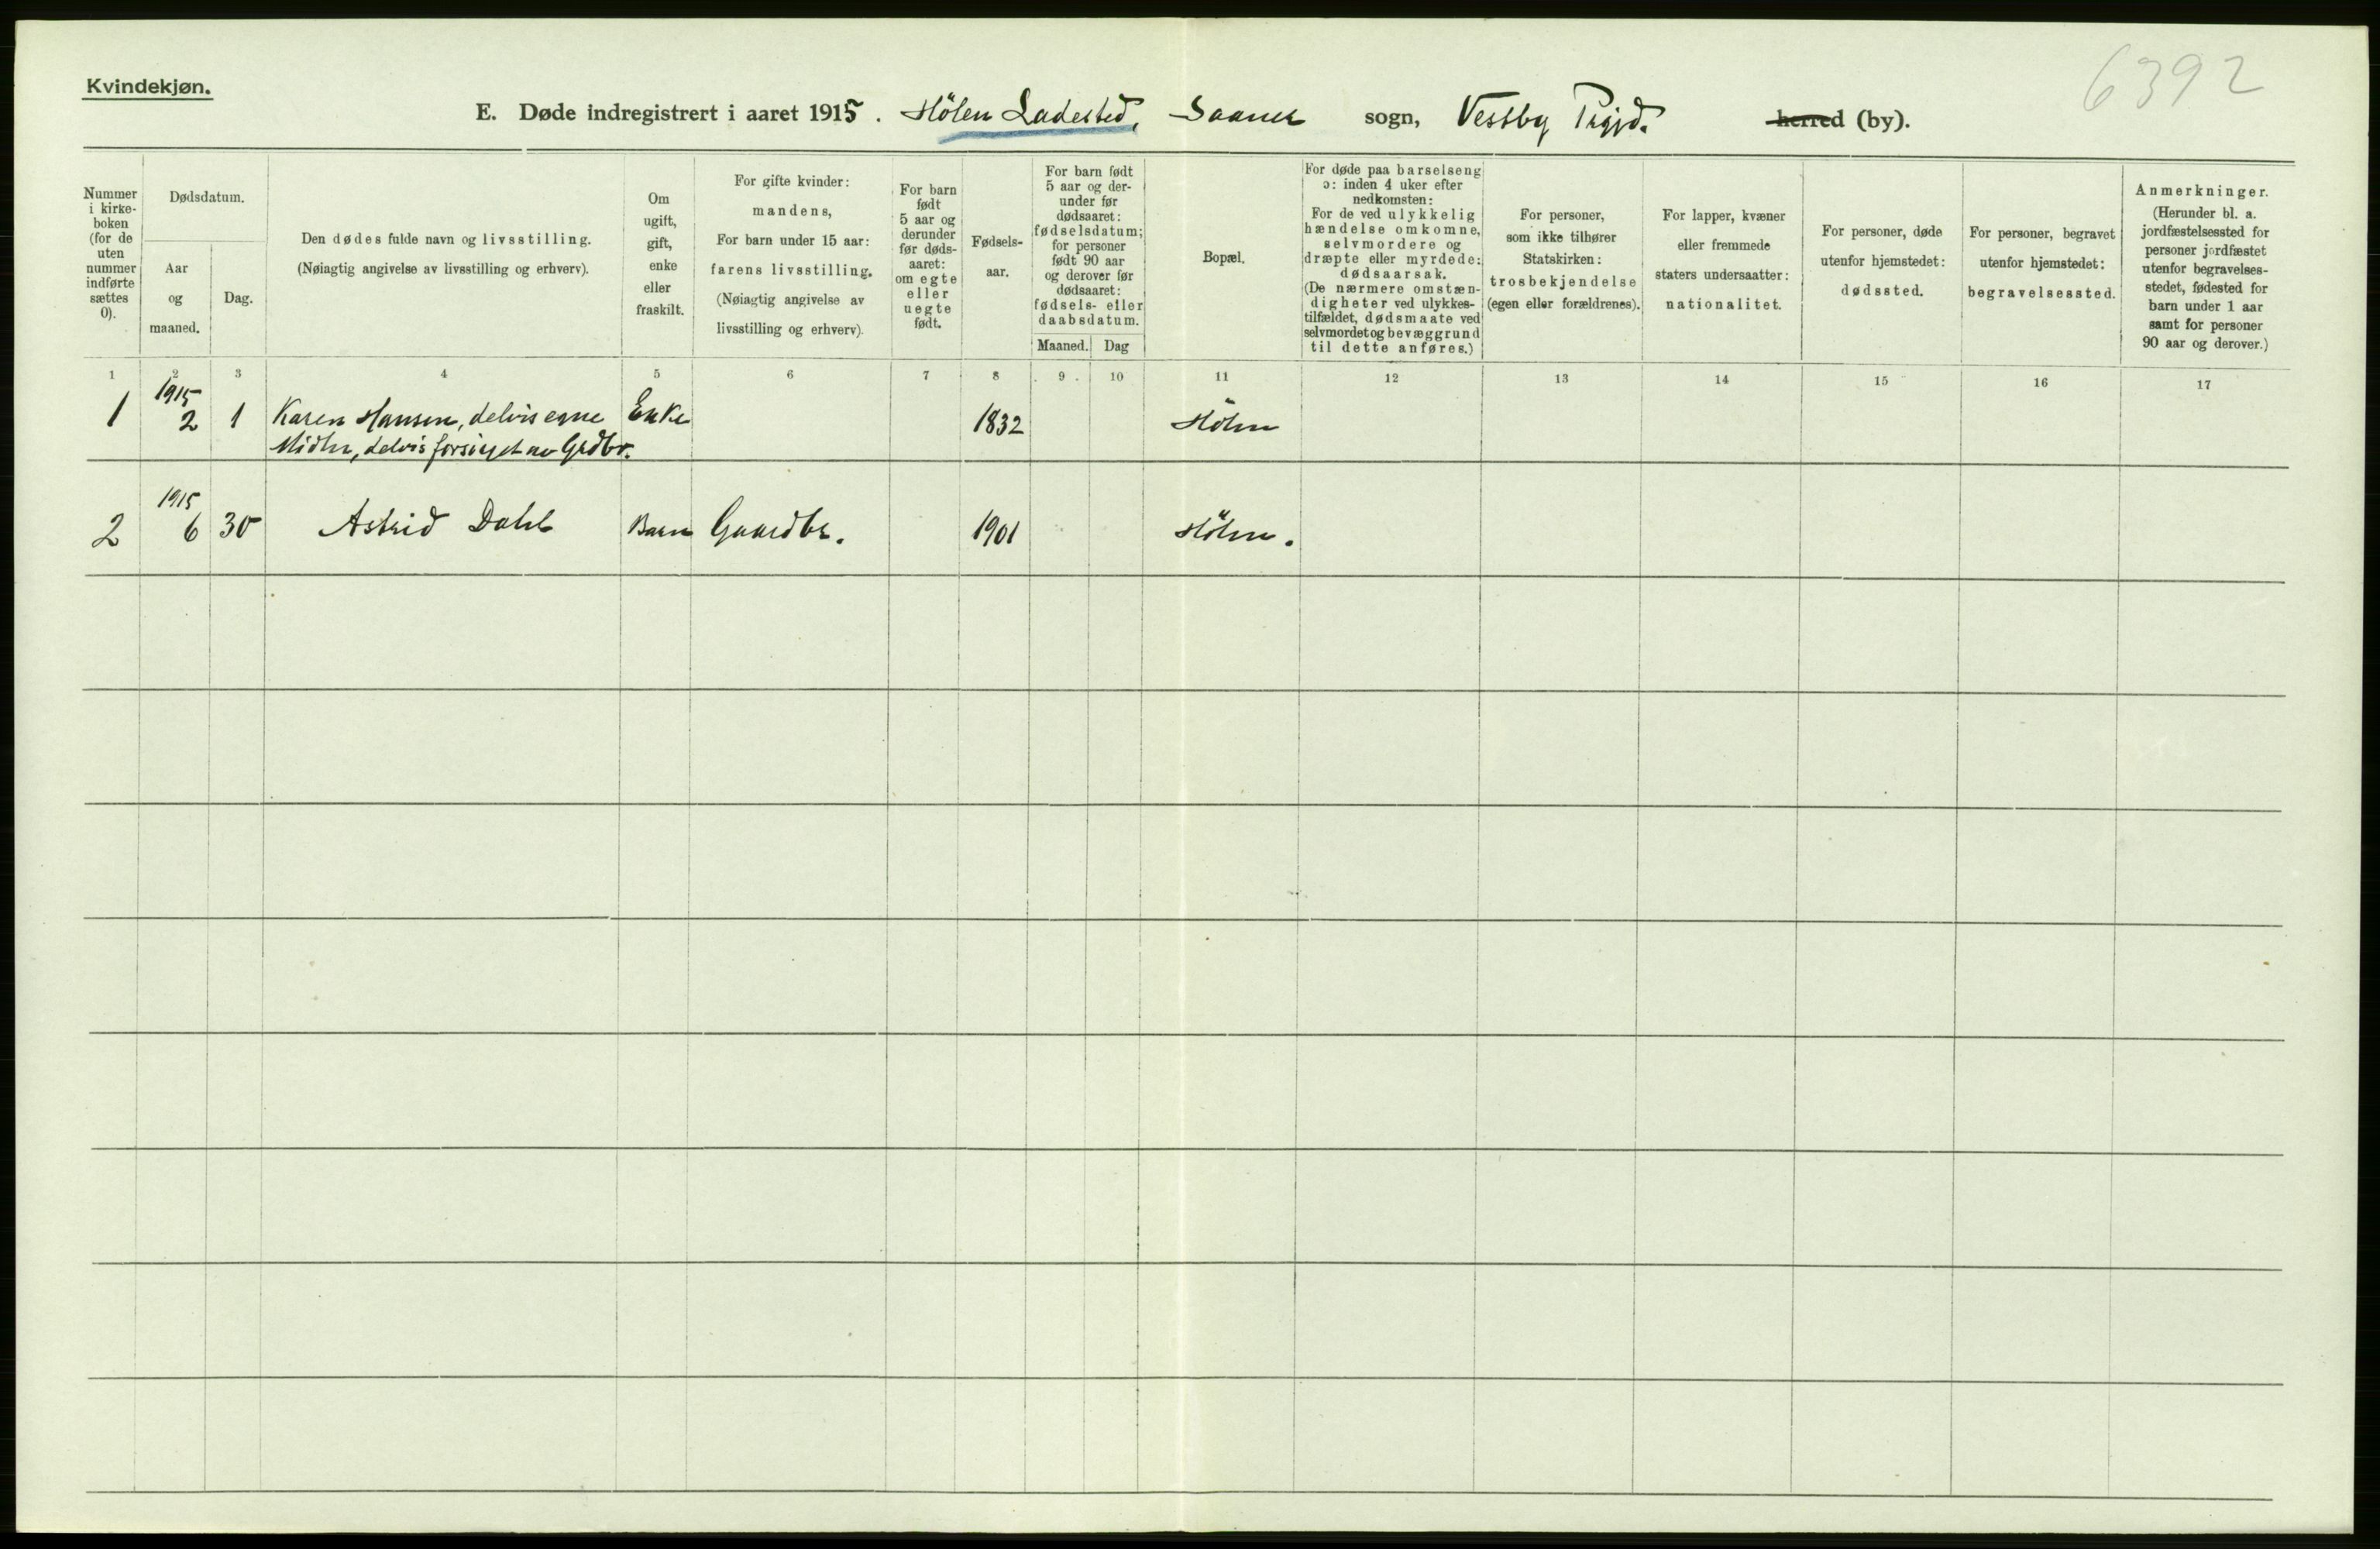 Kvindekjøn.
6392
E. Døde indregistrert i aaret 1915. Hölen Ladested, Saaner sogn, Vestby Prgjd. herred (by).
Nummer
i kirke-
boken
(for de
uten
nummer
indførte
sættes
0).
Dødsdatum.
Aar
og
maaned.
Dag.
Den dødes fulde navn og livsstilling.
(Nøiagtig angivelse av livsstilling og erhverv).
Om
ugift,
gift,
enke
eller
fraskilt.
For gifte kvinder:
mandens,
For barn under 15 aar:
farens livsstilling.
(Nøiagtig angivelse av
livsstilling og erhverv).
For barn
født
5 aar og
derunder
før døds-
aaret:
om egte
eller
uegte
født.
Fødsels-
aar.
For barn født
5 aar og der-
under før
dødsaaret:
fødselsdatum;
for personer
født 90 aar
og derover før
dødsaaret:
fødsels- eller
daabsdatum.
Maaned. Dag
Bopæl.
For døde paa barselseng
ɔ: inden 4 uker efter
nedkomsten:
For de ved ulykkelig
hændelse omkomne,
selvmordere og
dræpte eller myrdede:
dødsaarsak.
(De nærmere omstæn-
digheter ved ulykkes-
tilfældet, dødsmaate ved
selvmordet og bevæggrund
til dette anføres.)
For personer,
som ikke tilhører
Statskirken:
trosbekjendelse
(egen eller forældrenes).
For lapper, kvæner
eller fremmede
staters undersaatter:
nationalitet.
For personer, døde
utenfor hjemstedet:
dødssted.
For personer, begravet
utenfor hjemstedet:
begravelsessted.
Anmerkninger.
(Herunder bl. a.
jordfæstelsessted for
personer jordfæstet
utenfor begravelses-
stedet, fødested for
barn under 1 aar
samt for personer
90 aar og derover.)
1 2 3 4 5 6 7 8 9 10 11 12 13 14 15 16 17
1915
1 2 1 Karen Hansen, delvis egne Enke 1832 Hölen
Midler, delvis forsörget av Grdbr.
1915
2 6 30 Astrid Dahl Barn Gaardbr. 1901 Hölen.